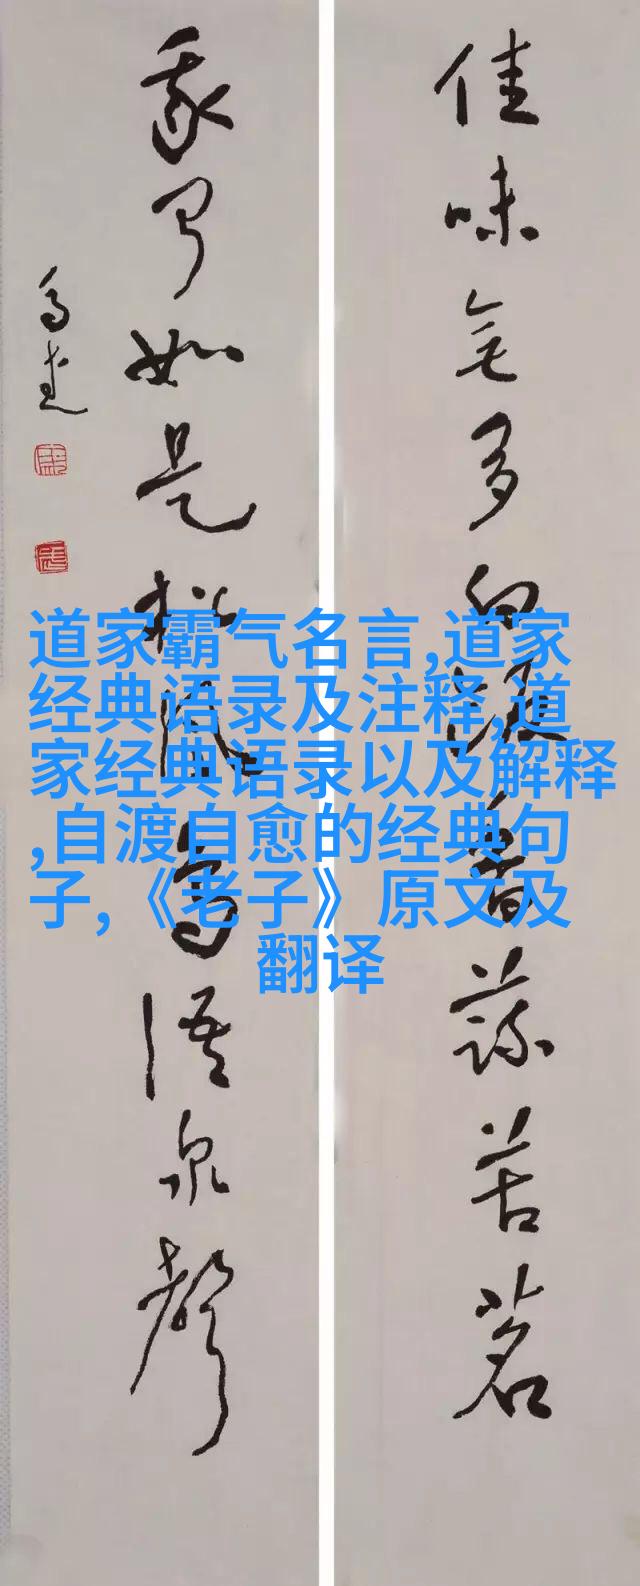 佳味無多白飯香蔬苦茗
我聞如是松風鳥語泉聲
道家霸气名言,道家
经典语录及注释,道
家经典语录以及解释
,自渡自愈的经典句
子,《老子》原文及
翻译